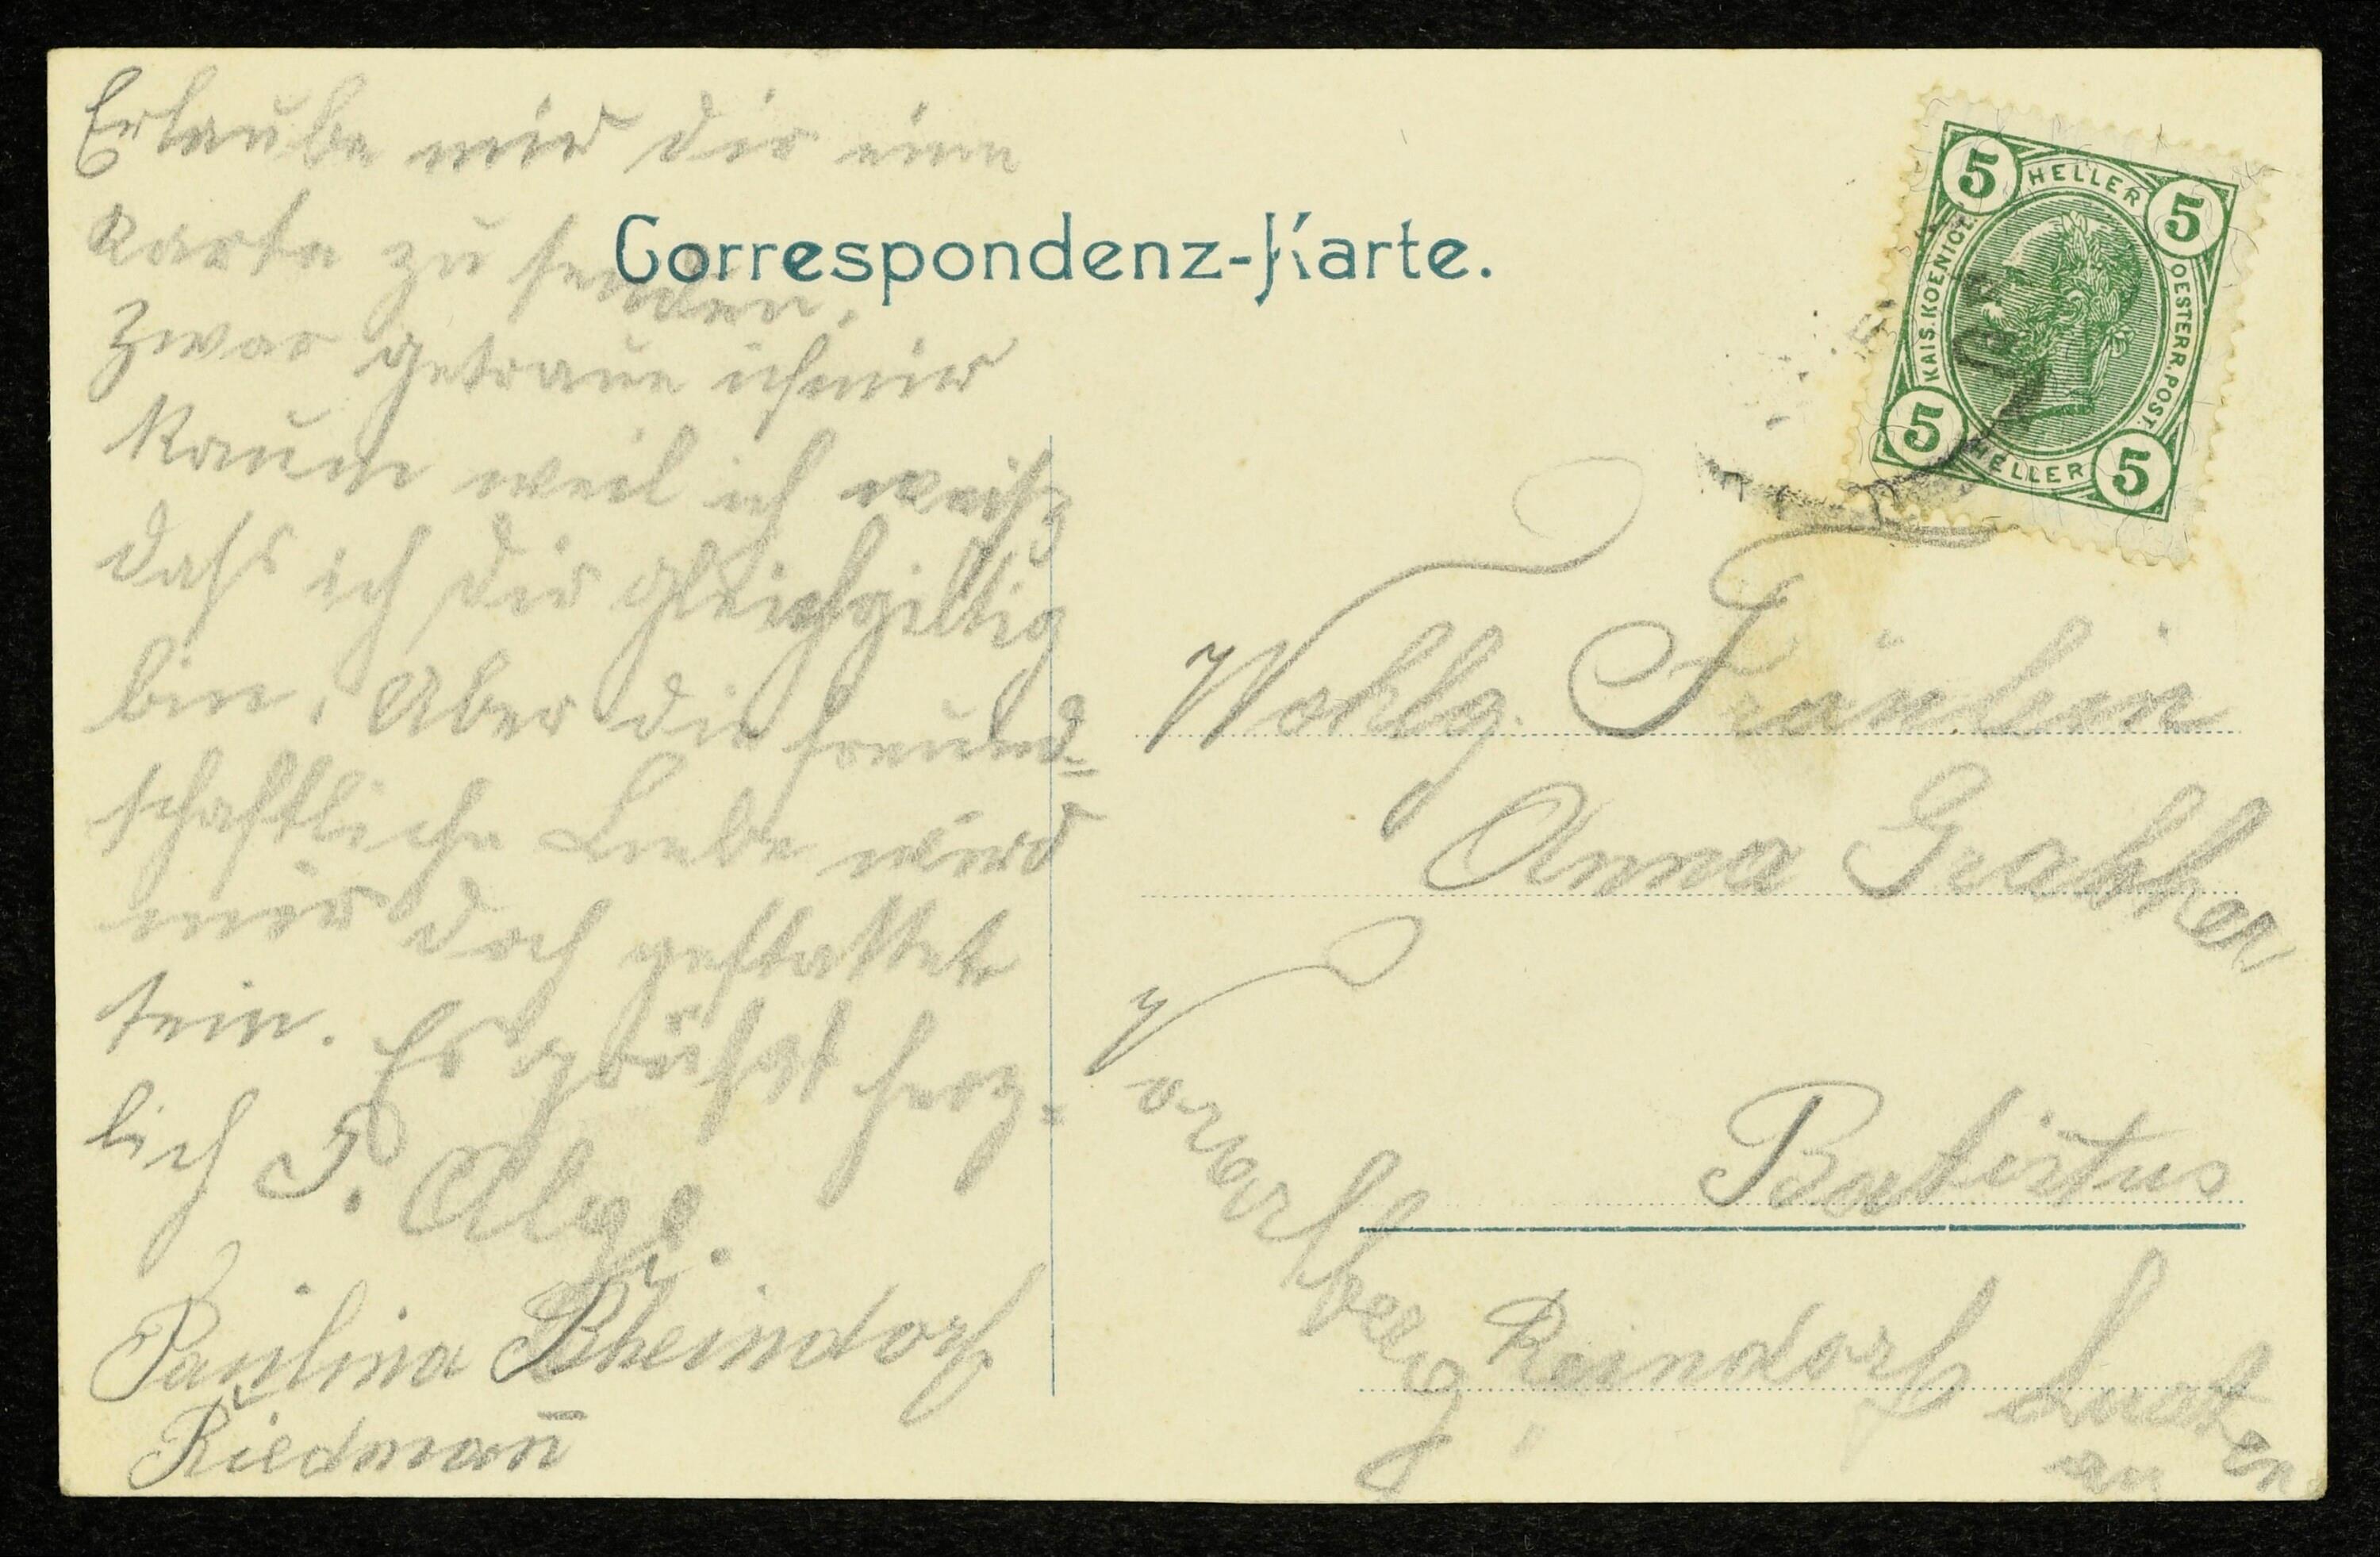 Erlaube mir dir eine
Karte zu senden.
Zwar getraue ich mir
kaum weil ich weiß
daß ich dir gleichgiltig
bin. Aber die freund=
schaftliche Liebe wird
mir doch gestattet
sein. Es grüßt herz=
lich F. Alge.
Paulina Rheindorf
Riedman̄
Correspondenz-Karte.
5 HELLER 5
KAIS. KOENIGL. OESTERR. POST.
5 HELLER 5
Wohlg. Fräulein
Anna Grabher
Batistus
Reindorf Lusten
au
Vorarlberg